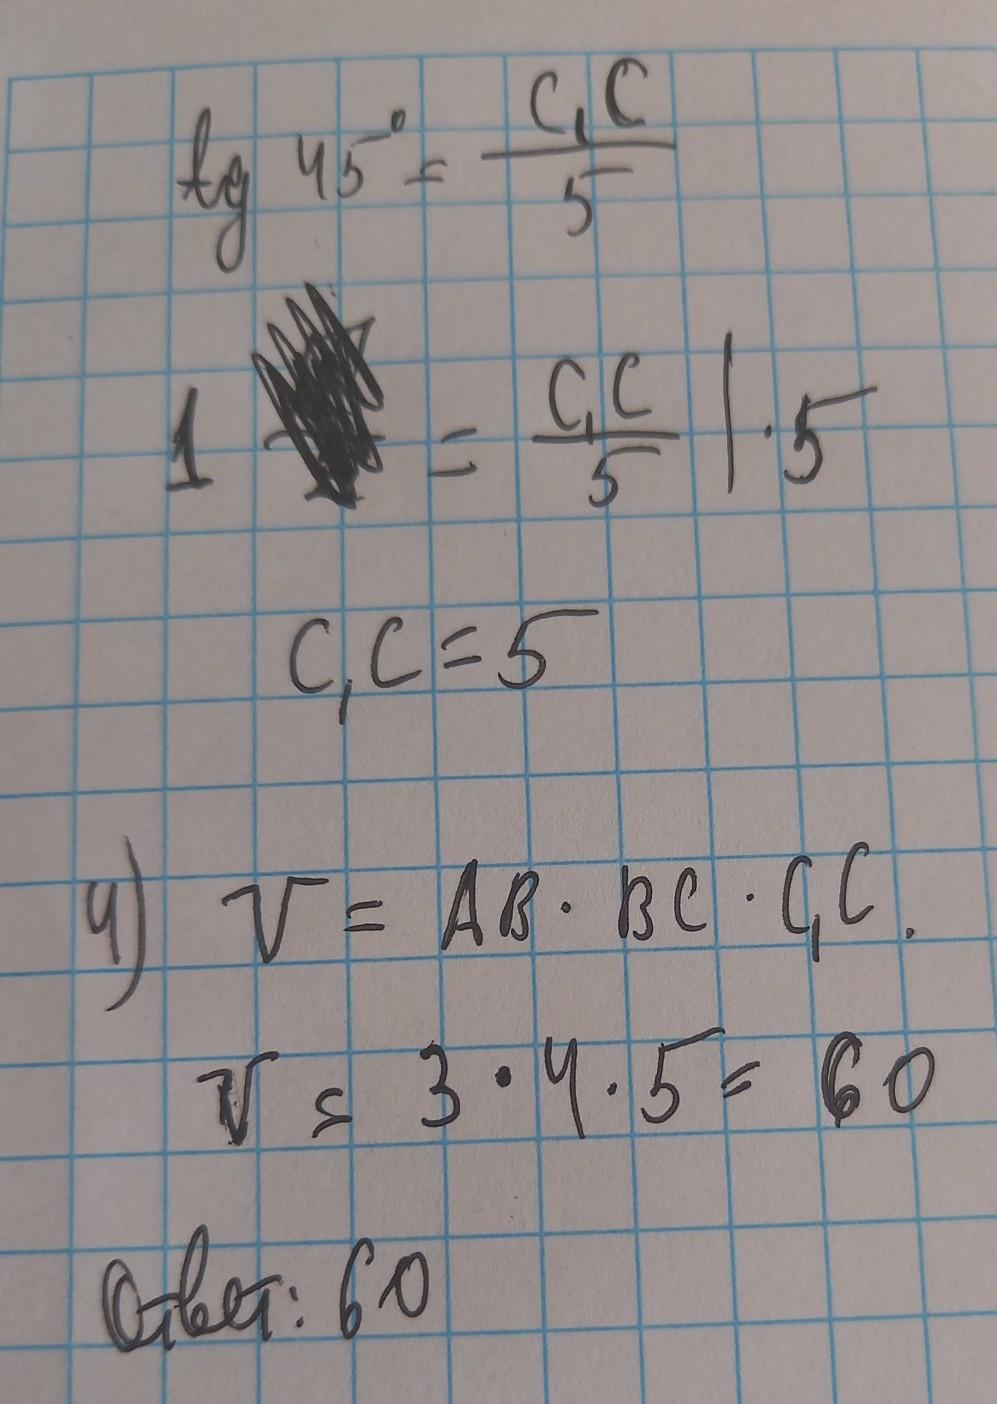 tg 45° = C₁C / 5
1 = C₁C / 5 | · 5
C₁C = 5
4) V = AB · BC · C₁C.
V = 3 · 4 · 5 = 60
Ответ: 60